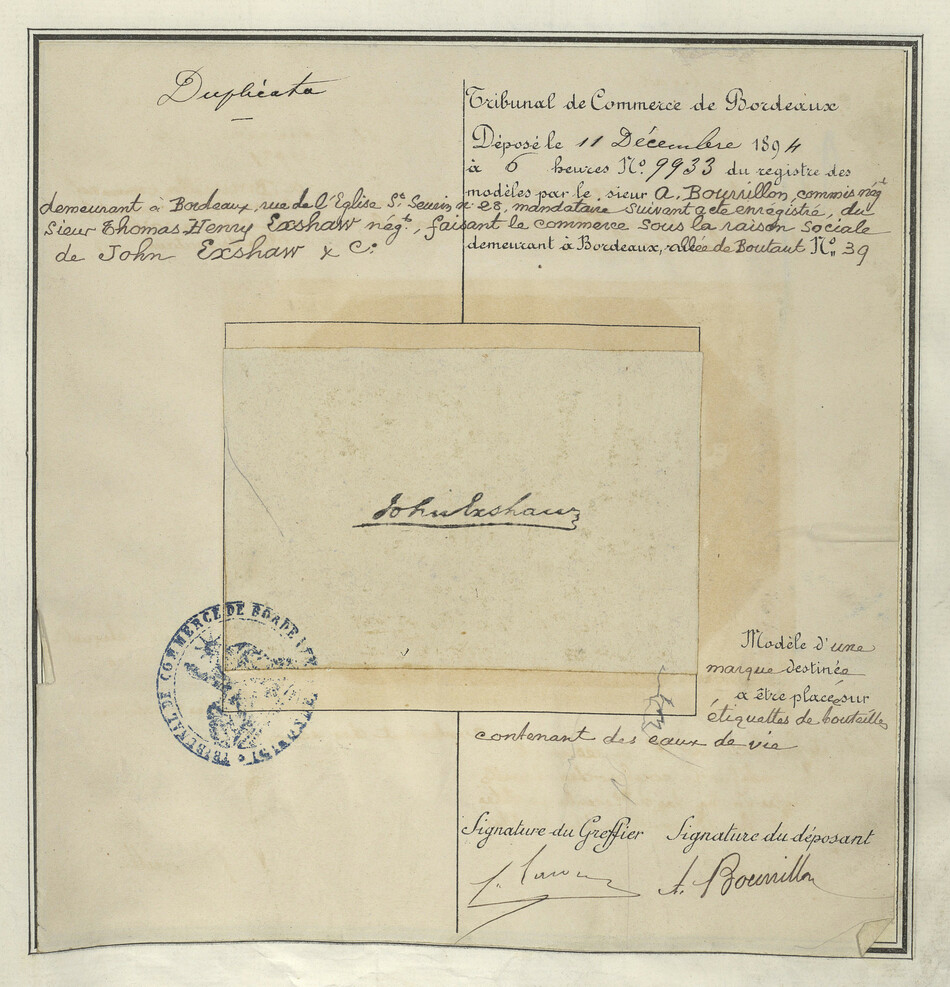 Duplicata
Tribunal de Commerce de Bordeaux
Déposé le 11 Décembre 1894
à 6 heures N° 9933 du registre des
modèles par le sieur A. Bourrillon, commis négt
demeurant à Bordeaux, rue de l'Eglise St Seurin n° 28, mandataire suivant acte enregistré, du
Sieur Thomas Henry Exshaw négt, faisant le commerce sous la raison sociale
de John Exshaw & Cie
demeurant à Bordeaux, allée de Boutaut N° 39
John Exshaw
TRIBUNAL DE COMMERCE DE BORDEAUX
Modèle d'une
marque destinée
a être placée sur
étiquettes de bouteilles
contenant des eaux de vie
Signature du Greffier Signature du déposant
A. Bourrillon